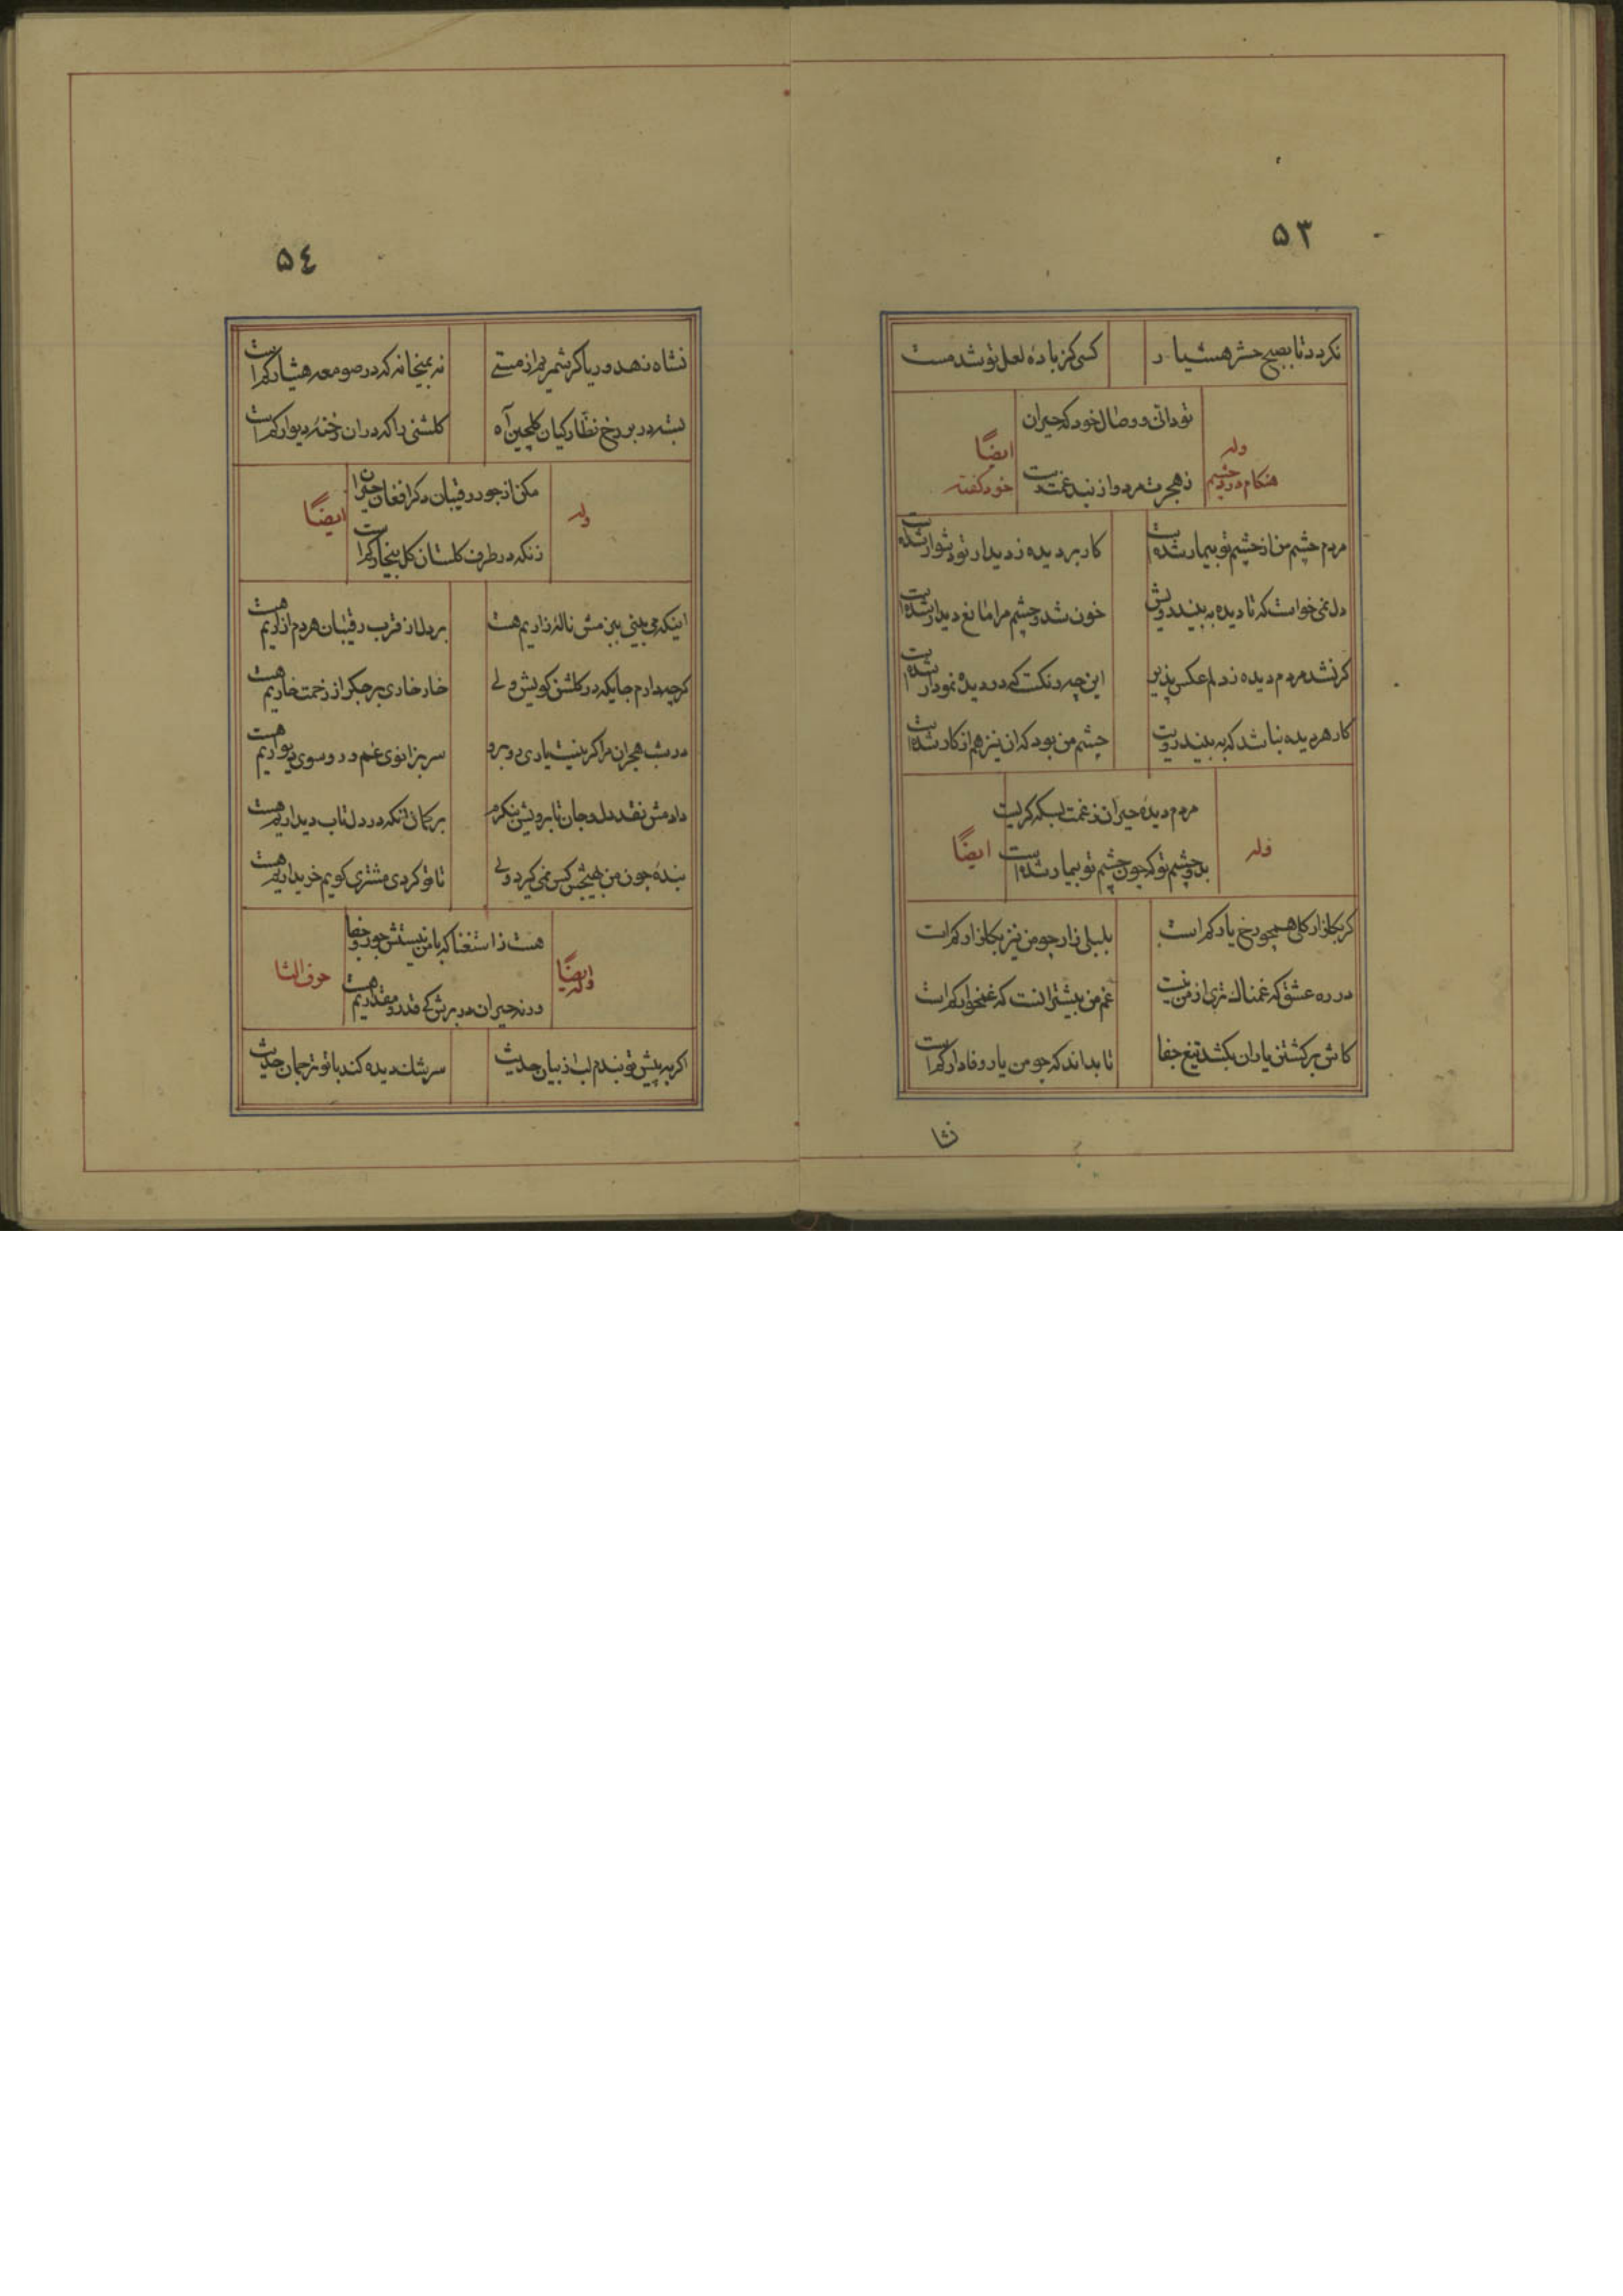 ۵۳
نکردد تا بصبح حشر هشیار
کسی کز بادهٔ لعل تو شد مست
تو دانی و وصال خود که حیران
وله
ایضاً
ز هجرت مرد و از بند غمت رست
هنکام درد چشم
خود کفته
مردم چشم من از چشم تو بیمار شده است
کار بر دیده ز دیدار تو دشوار شده است
دل نمی خواست که تا دیده به بیند رویش
خون شد و چشم مرا مانع دیدار شده است
کر نشد مردم دیده ز دلم عکس پذیر
این چه رنکست که در دیده نمودار شده است
کار هر دیده نباشد که به بیند رویت
چشم من بود که آن نیز هم از کار شده است
مردم دیدهٔ حیران ز غمت بسکه کریست
وله
ایضاً
بدو چشم تو که چون چشم تو بیمار شده است
کر بکلزار کلی همچو رخ یارم است
بلبلی زار چو من نیز بکلزار کم است
در ره عشق که غمناک تری از من نیست
غم من بیشتر آنست که غمخوار کم است
کاش بر کشتن یاران بکشد تیغ جفا
تا بداند که چو من یار وفادار کم است
نشا
۵٤
نشاه زهد و ریا کر شمرم از مستی
نه بمیخانه که در صومعه هشیار کم است
بسته در بر رخ نظارکیان کلچین آه
کلشنی را که در آن رخنهٔ دیوار کم است
مکن از جور رقیبان دکر افغان حیران
وله
ایضاً
زنکه در طرف کلستان کل بیخار کم است
اینکه می بینی ببزمش نالهٔ زاریم هست
بر دل از قرب رقیبان هر دم آزاریم هست
کرچه دارم جایکه در کلشن کویش ولی
خار خاری بر جکر از زحمت خاریم هست
در شب هجران مرا کر نیست یاری روبرو
سر بزانوی غم و رو سوی دیواریم هست
دادمش نقد دل و جان تا برویش بنکرم
بر کمان آنکه در دل تاب دیداریم هست
بندهٔ چون من بهیچش کس نمی کیرد ولی
تا تو کردی مشتری کویم خریداریم هست
هست ز استغنا که با من نیستش جور و جفا
وله ایضاً
حرف الثا
ورنه حیران در برش کی قدر و مقداریم هست
اکر به پیش تو بندم لب از بیان حدیث
سرشک دیده کند با تو ترجمان حدیث